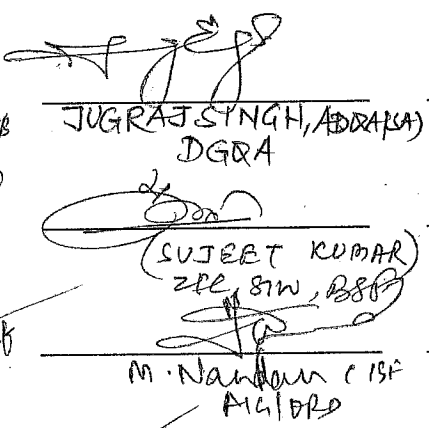 JUGRAJ SINGH, ADQA(SA)
DGQA
(SUJEET KUMAR)
2IC, STW, BSF
M. Nandan CISF
AIG/ORD